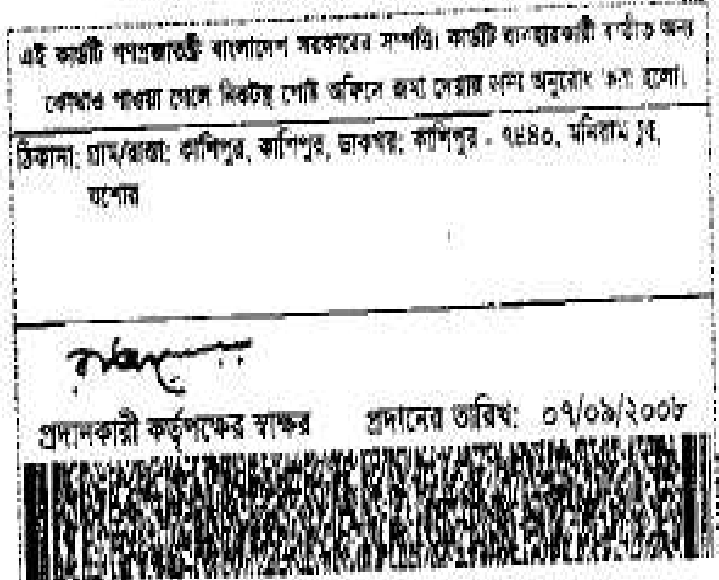 এই কার্ডটি গণপ্রজাতন্ত্রী বাংলাদেশ সরকারের সম্পত্তি। কার্ডটি ব্যবহারকারী ব্যতীত অন্য
কোথাও পাওয়া গেলে নিকটস্থ পোষ্ট অফিসে জমা দেয়ার জন্য অনুরোধ করা হলো।
ঠিকানা: গ্রাম/রাস্তা: কাশিপুর, কাশিপুর, ডাকঘর: কাশিপুর - ৭৪৪০, মনিরামপুর,
যশোর
প্রদানকারী কর্তৃপক্ষের স্বাক্ষর প্রদানের তারিখ: ০৭/০৯/২০০৮